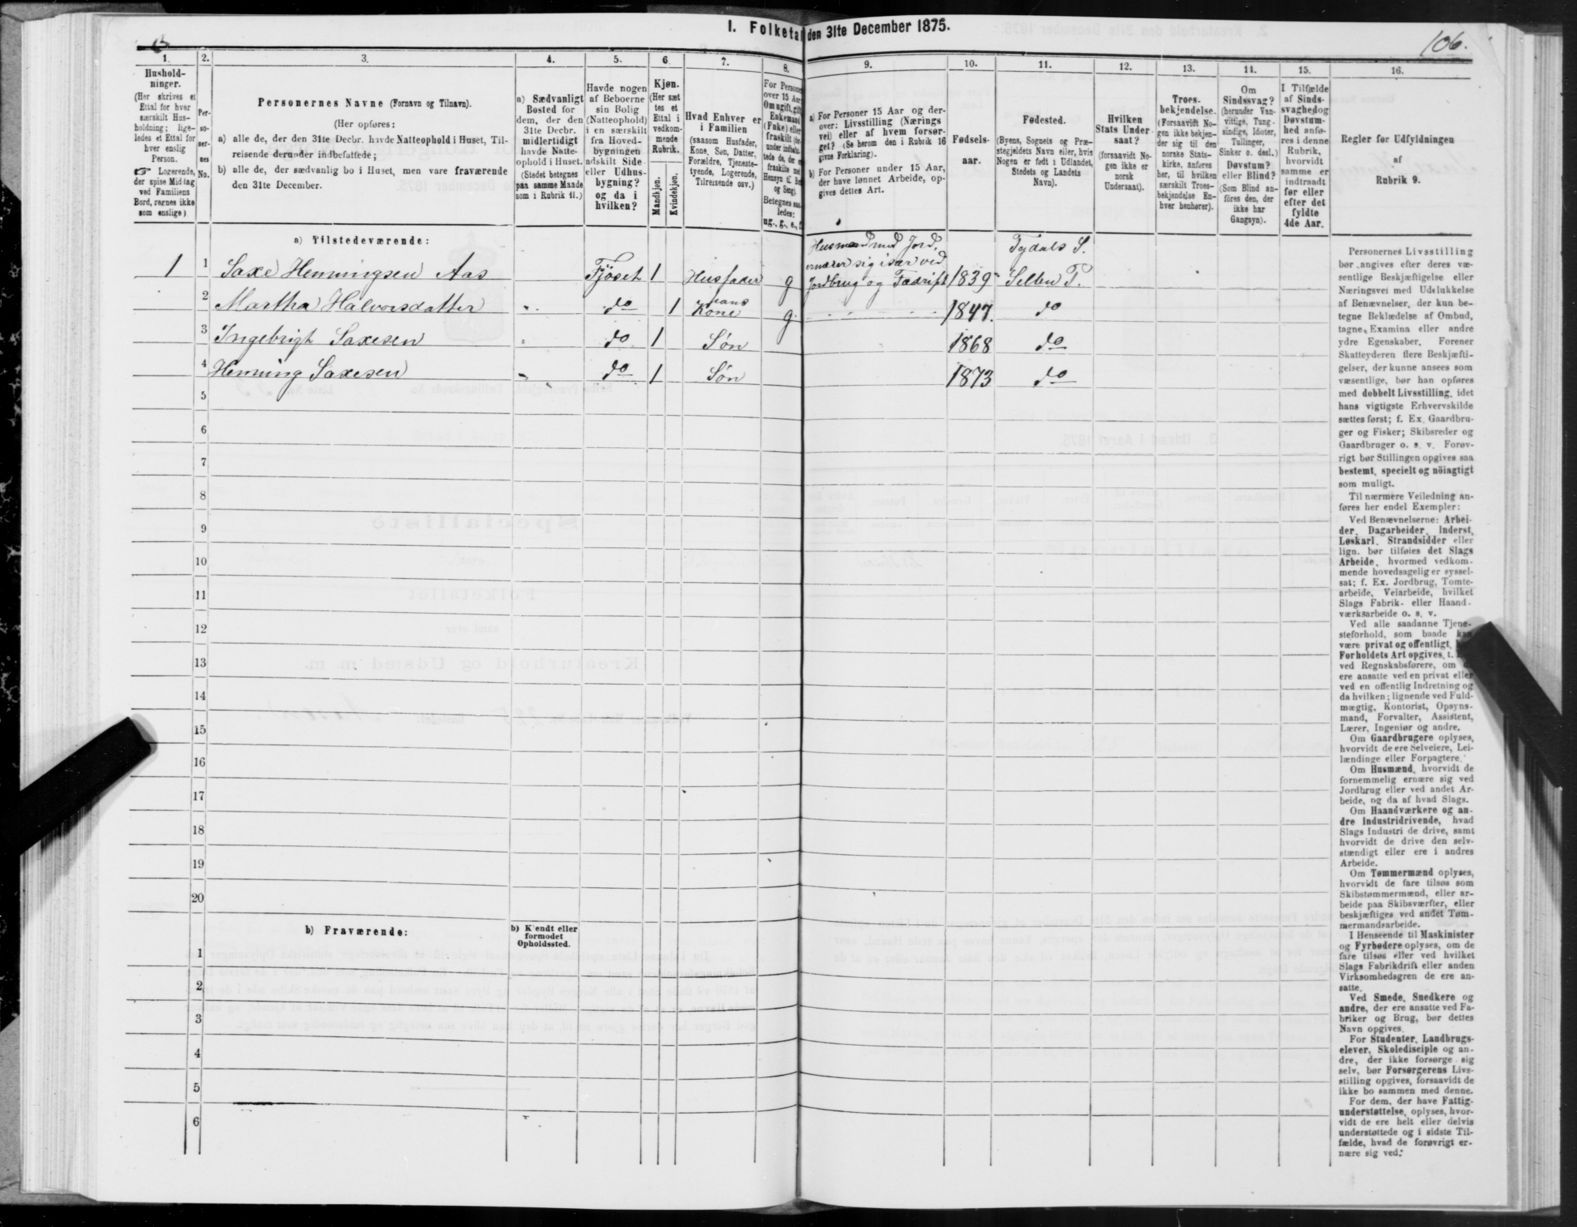 I. Folketa den 31te December 1875.
106.
1.
2.
3.
4.
5.
6
7.
8.
9.
10.
11.
12.
13.
14.
15.
16.
Hushold-
ninger.
(Her skrives et
Ettal for hver
særskilt Hus-
holdning; lige-
ledes et Ettal for
hver enslig
Person.
☞ Logerende,
der spise Middag
ved Familiens
Bord, regnes ikke
som enslige.)
Per-
so-
ner-
nes
No.
Personernes Navne (Fornavn og Tilnavn).
(Her opføres:
a) alle de, der den 31te Decbr. havde Natteophold i Huset, Til-
reisende derunder indbefattede;
b) alle de, der sædvanlig bo i Huset, men vare fraværende
den 31te December.
a) Sædvanligt
Bosted for
dem, der den
31te Decbr.
midlertidigt
havde Natte-
ophold i Huset.
(Stedet betegnes
paa samme Maade
som i Rubrik 11.)
Havde nogen
af Beboerne
sin Bolig
(Natteophold)
i en særskilt
fra Hoved-
bygningen
adskilt Side-
eller Udhus-
bygning?
og da i
hvilken?
Kjøn.
(Her sæt-
tes et
Ettal i
vedkom-
mende
Rubrik.
Mandkjøn.
Kvindekjøn.
Hvad Enhver er
i Familien
(saasom Husfader,
Kone, Søn, Datter,
Forældre, Tjeneste-
tyende, Logerende,
Tilreisende osv.)
For Persone
over 15 Aar
Om ugift, gift,
Enkemand
(Enke) elle
fraskilt
a) For Personer 15 Aar og der-
over: Livsstilling (Nærings-
vei) eller af hvem forsør-
get? (Se herom den i Rubrik 16
givne Forklaring).
b) For Personer under 15 Aar,
der have lønnet Arbeide, op-
gives dettes Art.
Fødsels-
aar.
Fødested.
(Byens, Sognets og Præ-
stegjeldets Navn eller, hvis
Nogen er født i Udlandet,
Stedets og Landets
Navn).
Hvilken
Stats Under-
saat?
(forsaavidt No-
gen ikke er
norsk
Undersaat).
Troes-
bekjendelse.
(Forsaavidt No-
gen ikke bekjen-
der sig til den
norske Stats-
kirke, anføres
her, til hvilken
særskilt Troes-
bekjendelse En-
hver henhører).
Om
Sindssvag?
(herunder Van-
vittige, Tung-
sindige, Idioter,
Tullinger,
Sinker o. desl.)
Døvstum?
eller Blind?
(Som Blind an-
føres den, der
ikke har
Gangsyn).
I Tilfælde
af Sinds-
svaghed og
Døvstum-
hed anfø-
res i denne
Rubrik,
hvorvidt
samme er
indtraadt
før eller
efter det
fyldte
4de Aar.
Regler for Udfyldningen
af
Rubrik 9.
a) Tilstedeværende:
1 1 Saxe Henningsen Aas Fjöset 1 Husfader g Husmand med Jord, ernærer sig især ved Jordbrug og Fædrift 1839 Tydals S. Selbu P.
2 Martha Halvorsdatter do 1 hans Kone g 1847. do
3 Ingebrigt Saxesen do 1 Søn 1868 do
4 Henning Saxesen do 1 Søn 1873 do
5
6
7
8
9
10
11
12
13
14
15
16
17
18
19
20
b) Fraværende:
b) Kjendt eller
formodet
Opholdssted.
1
2
3
4
5
6
Personernes Livsstilling
bør angives efter deres væ-
sentlige Beskjæftigelse eller
Næringsvei med Udelukkelse
af Benævnelser, der kun be-
tegne Beklædelse af Ombud,
tagne Examina eller andre
ydre Egenskaber. Forener
Skatteyderen flere Beskjæfti-
gelser, der kunne ansees som
væsentlige, bør han opføres
med dobbelt Livsstilling, idet
hans vigtigste Erhvervskilde
sættes først; f. Ex. Gaardbru-
ger og Fisker; Skibsreder og
Gaardbruger o. s. v. Forøv-
rigt bør Stillingen opgives saa
bestemt, specielt og nöiagtigt
som muligt.
Til nærmere Veiledning an-
føres her endel Exempler:
Ved Benævnelserne: Arbei-
der, Dagarbeider, Inderst,
Løskarl, Strandsidder eller
lign. bør tilføies det Slags
Arbeide, hvormed vedkom-
mende hovedsagelig er syssel-
sat; f. Ex. Jordbrug, Tomte-
arbeide, Veiarbeide, hvilket
Slags Fabrik- eller Haand-
værksarbeide o. s. v.
Ved alle saadanne Tjene-
steforhold, som baade
være privat og offentligt,
Forholdets Art opgives, t.
ved Regnskabsførere, om
ere ansatte ved en privat eller
ved en offentlig Indretning og
da hvilken; lignende ved Fuld-
mægtig, Kontorist, Opsyns-
mand, Forvalter, Assistent,
Lærer, Ingeniør og andre.
Om Gaardbrugere oplyses,
hvorvidt de ere Selveiere, Lei-
lændinge eller Forpagtere.
Om Husmænd, hvorvidt de
fornemmelig ernære sig ved
Jordbrug eller ved andet Ar-
beide, og da af hvad Slags.
Om Haandværkere og an-
dre Industridrivende, hvad
Slags Industri de drive, samt
hvorvidt de drive den selv-
stændigt eller ere i andres
Arbeide.
Om Tømmermænd oplyses,
hvorvidt de fare tilsøs som
Skibstømmermænd, eller ar-
beide paa Skibsværfter, eller
beskjæftiges ved andet Tøm-
mermandsarbeide.
I Henseende til Maskinister
og Fyrbødere oplyses, om de
fare tilsøs eller ved hvilket
Slags Fabrikdrift eller anden
Virksomhedsgren de ere an-
satte.
Ved Smede, Snedkere og
andre, der ere ansatte ved Fa-
briker og Brug, bør dettes
Navn opgives.
For Studenter, Landbrugs-
elever, Skoledisciple og an-
dre, der ikke forsørge sig
selv, bør Forsørgerens Livs-
stilling opgives, forsaavidt de
ikke bo sammen med denne.
For dem, der have Fattig-
understøttelse, oplyses, hvor-
vidt de ere helt eller delvis
understøttede og i sidste Til-
fælde, hvad de forøvrigt er-
nære sig ved.